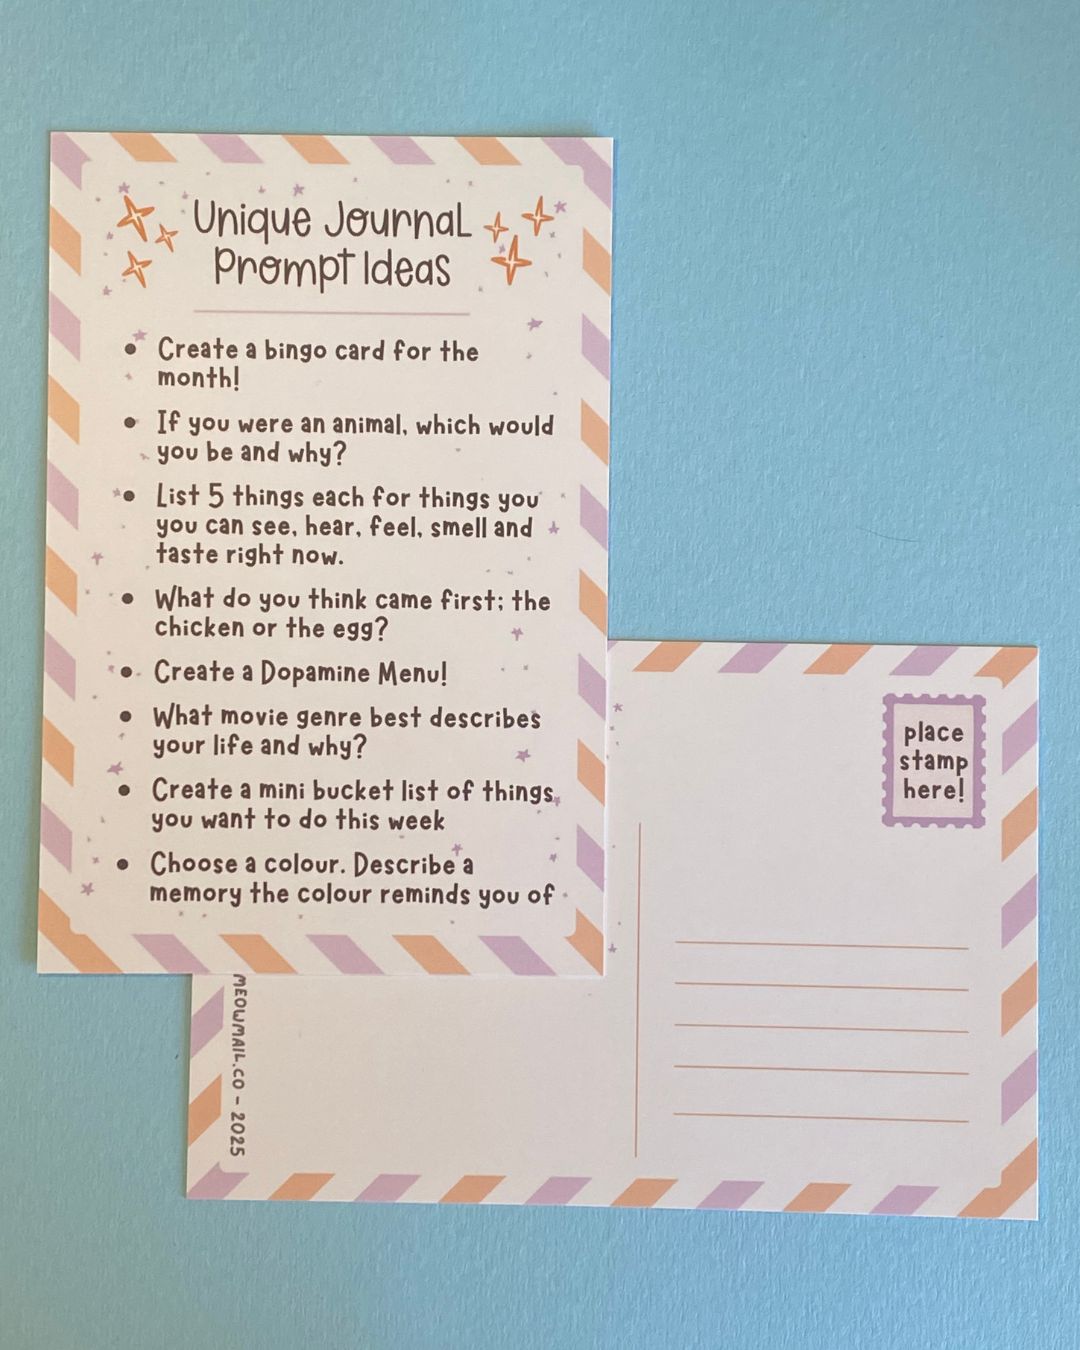 Unique Journal
Prompt Ideas
• Create a bingo card for the
month!
• If you were an animal, which would
you be and why?
• List 5 things each for things you
you can see, hear, feel, smell and
taste right now.
• What do you think came first; the
chicken or the egg?
• Create a Dopamine Menu!
• What movie genre best describes
your life and why?
• Create a mini bucket list of things
you want to do this week
• Choose a colour. Describe a
memory the colour reminds you of
place
stamp
here!
MEOWMAIL.CO - 2025